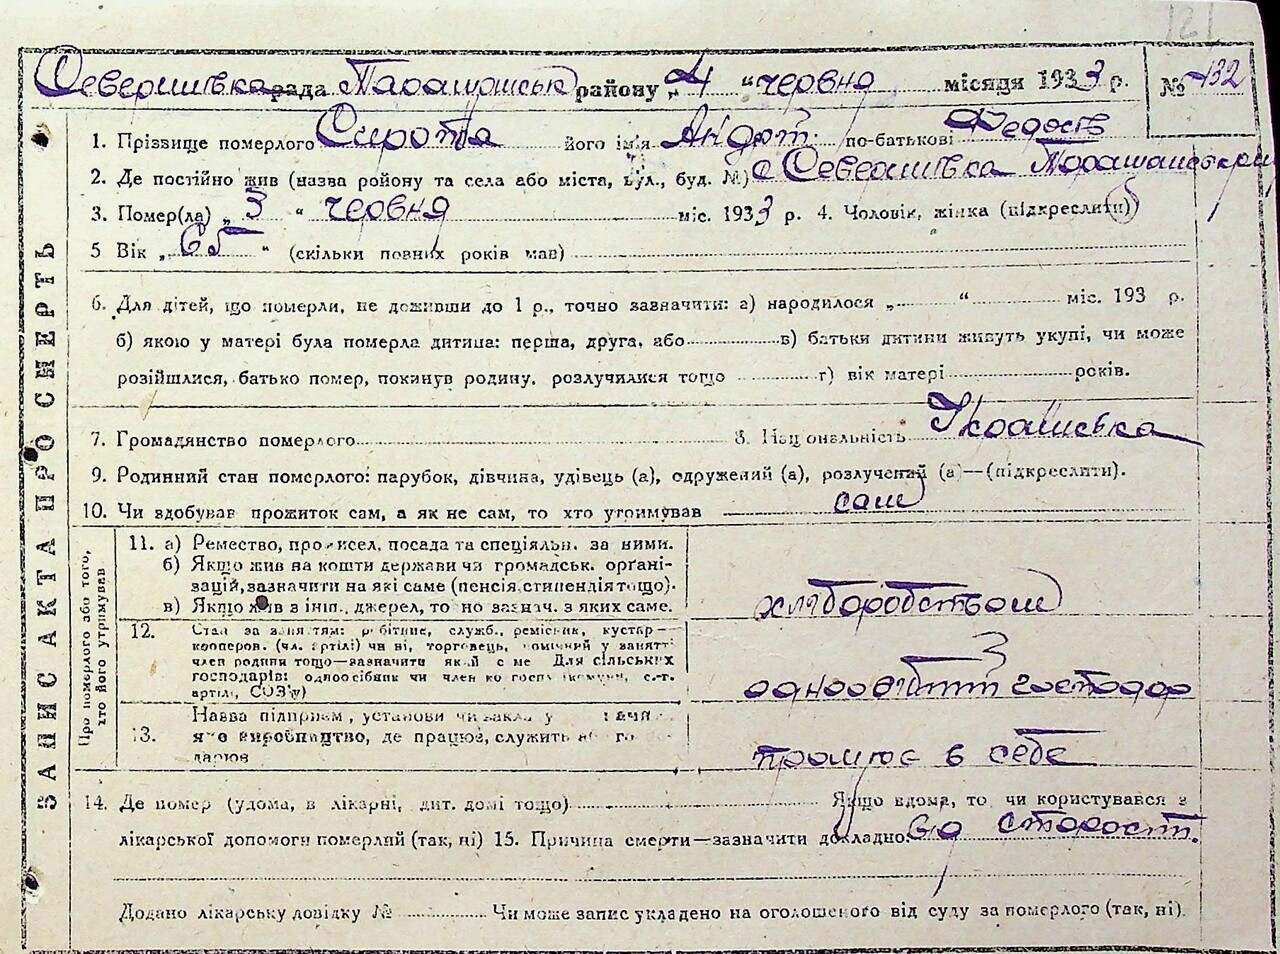 121
Северинівка рада Таращанськ району „4 “ червня місяця 1933 р. № 132
1. Прізвище померлого Сирота його ім'я Андрт. по-батькові Федось
2. Де постійно жив (назва району та села або міста, вул., буд. №) с Северинівка Таращанськ
3. Помер(ла) „ 3 “ червня міс. 1933 р. 4. Чоловік, жінка (підкреслити)
5 Вік „ 65 “ (скільки повних років мав)
6. Для дітей, що померли, не доживши до 1 р., точно зазначити: а) народилося „ “ міс. 193 р.
б) якою у матері була померла дитина: перша, друга, або в) батьки дитини живуть укупі, чи може
розійшлися, батько помер, покинув родину, розлучилися тощо г) вік матері років.
7. Громадянство померлого 8. Національність Українська
9. Родинний стан померлого: парубок, дівчина, удівець (а), одружений (а), розлучений (а)—(підкреслити).
10. Чи здобував прожиток сам, а як не сам, то хто утримував сам
ЗАПИС АКТА ПРО СМЕРТЬ
Про померлого або того, хто його утримував
11. а) Ремество, промисел, посада та спеціяльн. за ними.
б) Якщо жив на кошти держави чи громадськ. орґані-
зацій, зазначити на які саме (пенсія, стипендія тощо).
в) Якщо жив з інш., джерел, то но зазнач. з яких саме. хліборобством
12. Стан за заняттям: робітник, служб., ремісник, кустар—
кооперов. (чл. артілі) чи ні, торговець, помічний у занятті
член родини тощо—зазначити який с ме Для сільських
господарів: одноосібник чи член ко госпу комуни, с.-г.
артілі, СОЗ'у) одноосібний господар
13. Назва підприєм., установи чи закла у
яко виробництво, де працює, служить або го по-
дарює працює в себе
14. Де помер (удома, в лікарні, дит. домі тощо) Якщо вдома, то чи користувався з
лікарської допомоги померлий (так, ні) 15. Причина смерти—зазначити докладно: від старості.
Додано лікарську довідку № Чи може запис укладено на оголошеного від суду за померлого (так, ні).